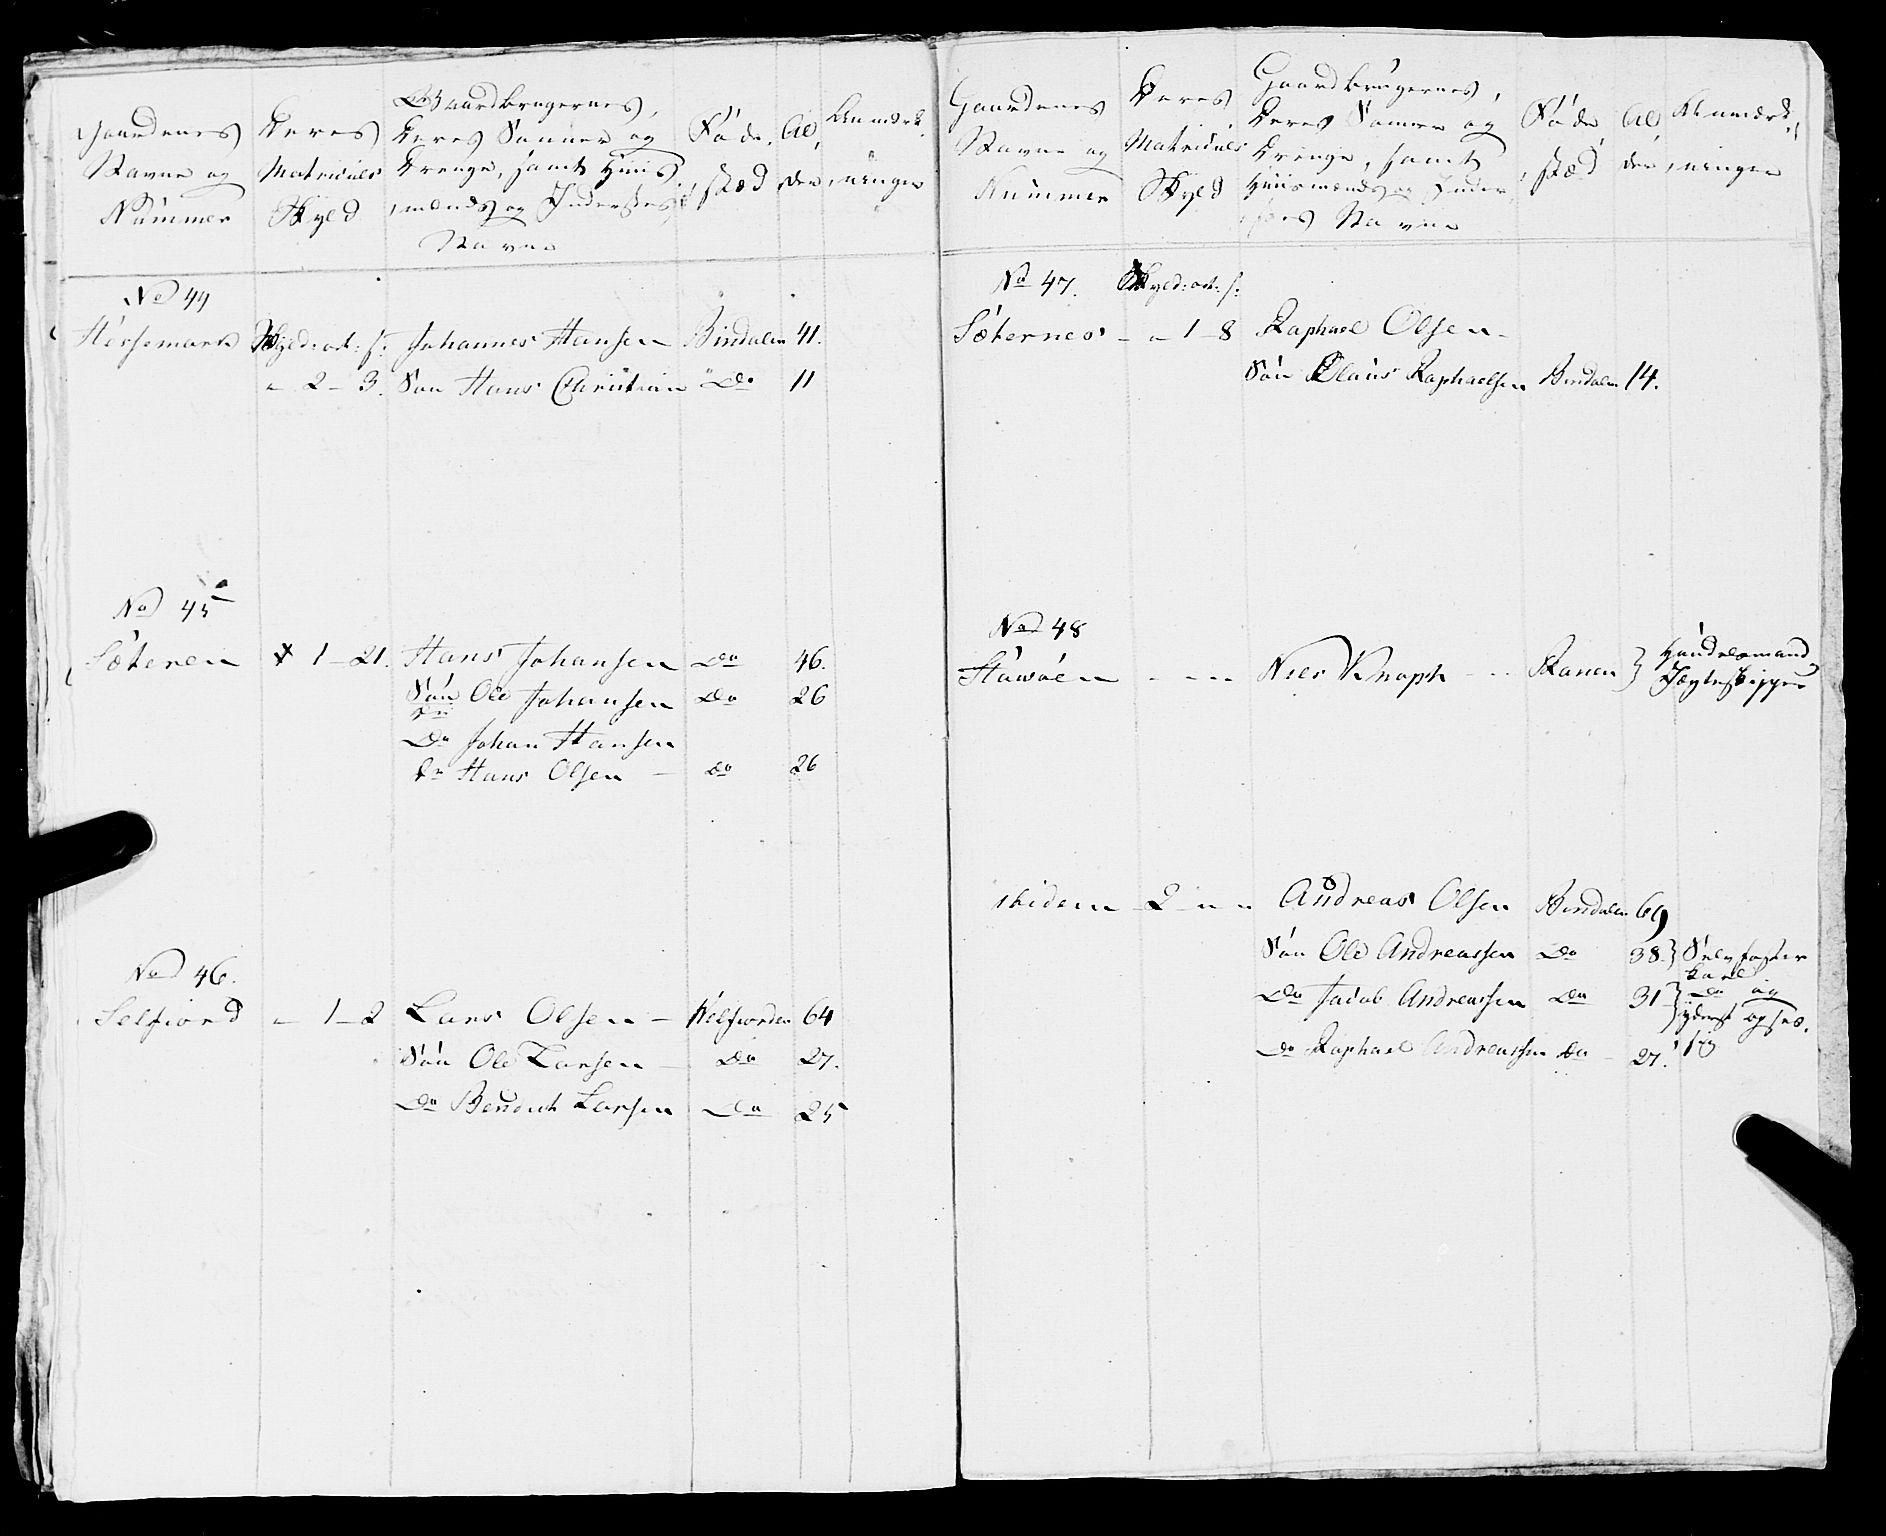 Gaardenes
Navne og
Nummer
Deres
Matriculs
Skyld
Gaardbrugernes,
Deres Sønner og
Drenge, samt Huus
mænds og Inderstes
Navne
Føde,
stæd
Al,
der
Anmærk,
ninger
No 44
Horsemark Skyld: ort: s: Johannes Hansen Bindalen 41.
" 2 - 3. Søn Hans Christian Do 11
No 45
Sæteren 1 - 21. Hans Johansen Do 46.
Søn Ole Johansen Do 26
Do Johan Hansen
Do Hans Olsen - Do 26
No 46.
Selfiord - 1 - 2 Lars Olsen - Velfiorden 64
Søn Ole Larsen - Do 27.
Do Bendict Larsen Do 25
Gaardenes
Navne og
Nummer
Deres
Matriculs
Skyld
Gaardbrugernes,
Deres Sønner og
Drenge, samt
Huusmænds og Inder,
stes Navne
Føde
stæd
Al,
der
Anmærk,
ninger
No 47. Skyld: ort: s:
Sæternes - " 1 - 8 Raphael Olsen -
Søn Olaus Raphaelsen Bindalen 14.
No 48
Niels Knaph - - Ranen } Handelsmand
Jægteskipper
ibidem - 2 - " " Andreas Olsen Bindalen 69
Søn Ole Andreassen Do 38. }
Karl
Do Jacob Andreassen Do 31 } Do og
yderst
Do Raphael Andreassen Do - 27.